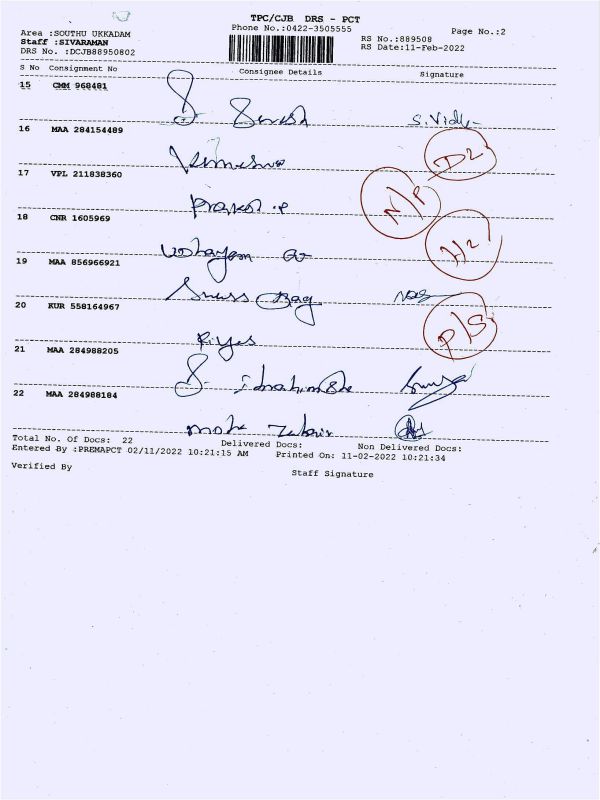 TPC/CJB DRS - PCT
Phone No.:0422-3505555
Page No.:2
Area :SOUTHU UKKADAM
Staff :SIVARAMAN
DRS No. :DCJB88950802
RS No.:889508
RS Date:11-Feb-2022
S No Consignment No Consignee Details Signature
15 CMM 968481
S. Vidy
16 MAA 284154489
D2
17 VPL 211838360
Prakash .P N/P
18 CNR 1605969
H2
19 MAA 856966921
Bag
20 KUR 558164967
P/S
Riyas
21 MAA 284988205
22 MAA 284988184
Total No. Of Docs: 22 Delivered Docs: Non Delivered Docs:
Entered By :PREMAPCT 02/11/2022 10:21:15 AM Printed On: 11-02-2022 10:21:34
Verified By Staff Signature